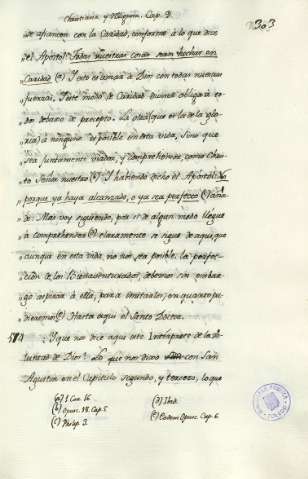 Christiana y Religiosa. Cap. 9. 303
se afiancen con la Caridad, conforme à lo que dice
el Apostol: Todas vuestras cosas sean hechas en
Caridad (a) Y esto es amar à Dios con todas nuestras
fuerzas. Y este modo de Caridad divina obliga à to-
dos debaxo de precepto. La otra (que es la de la glo-
ria) à ninguno es posible en esta vida, sino que
sea juntamente viador, y comprehensor, como Chris-
to Señor nuestro (b) Y habiendo dicho el Apostol: No
porque ya haya alcanzado, ò ya sea perfecto (c) aña-
de: Mas voy siguiendo, por si de algun modo llegue
à comprehender (d) claramente se sigue de aqui, que
aunque en esta vida no nos sea posible la perfec-
cion de los Bienaventurados, debemos sin embar-
go aspirar à ella, para imitarlos, en quanto pu-
dieremos (e) Hasta aqui el Santo Doctor.
Y que nos dice aqui este Interprete de la vo-
luntad de Dios? Lo que nos dixo con San
Agustin en el Capitulo segundo, y tercero, lo que
(a) 1. Cor. 16.
(b) Opusc. 18. Cap. 5
(c) Philip. 3.
(d) Ibid.
(e) Eodem Opusc. Cap. 6